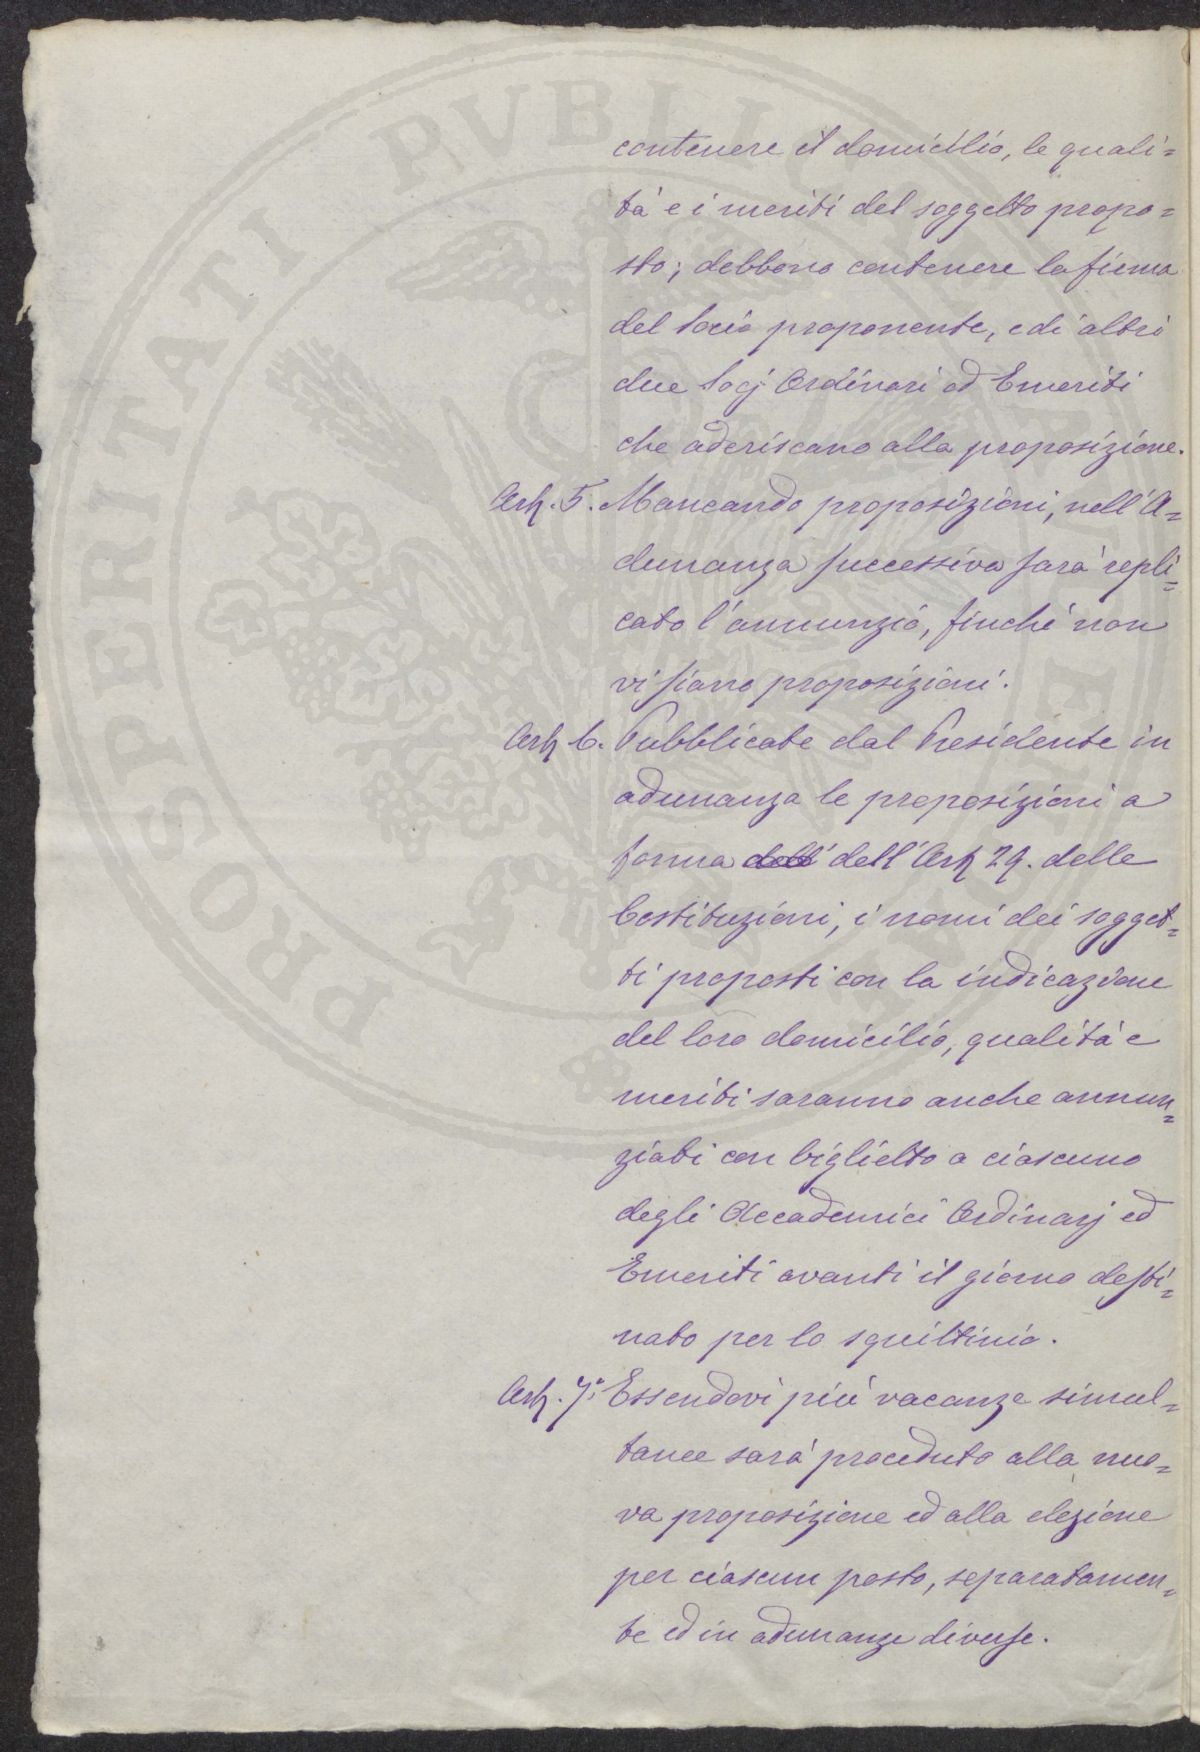 contenere il domicilio, le quali=
tà e i meriti del soggetto propo=
sto; debbono contenere la firma
del Socio proponente, e di altri
due Socj Ordinari ed Emeriti
che aderiscano alla proposizione.
Art. 5. Mancando proposizioni, nell'A=
dunanza successiva sarà repli=
cato l'annunzio, finché non
vi siano proposizioni.
Art 6. Pubblicate dal Presidente in
adunanza le proposizioni a
forma dell' dell'Art 29. delle
Costituzioni, i nomi dei sogget=
ti proposti con la indicazione
del loro domicilio, qualità e
meriti saranno anche annun=
ziati con biglietto a ciascuno
degli Accademici Ordinarj ed
Emeriti avanti il giorno desti=
nato per lo squittinio.
Art. 7.° Essendovi più vacanze simul=
tanee sarà proceduto alla nuo=
va proposizione ed alla elezione
per ciascun posto, separatamen=
te ed in adunanze diverse.
PROSPERITATI PVBLICAE